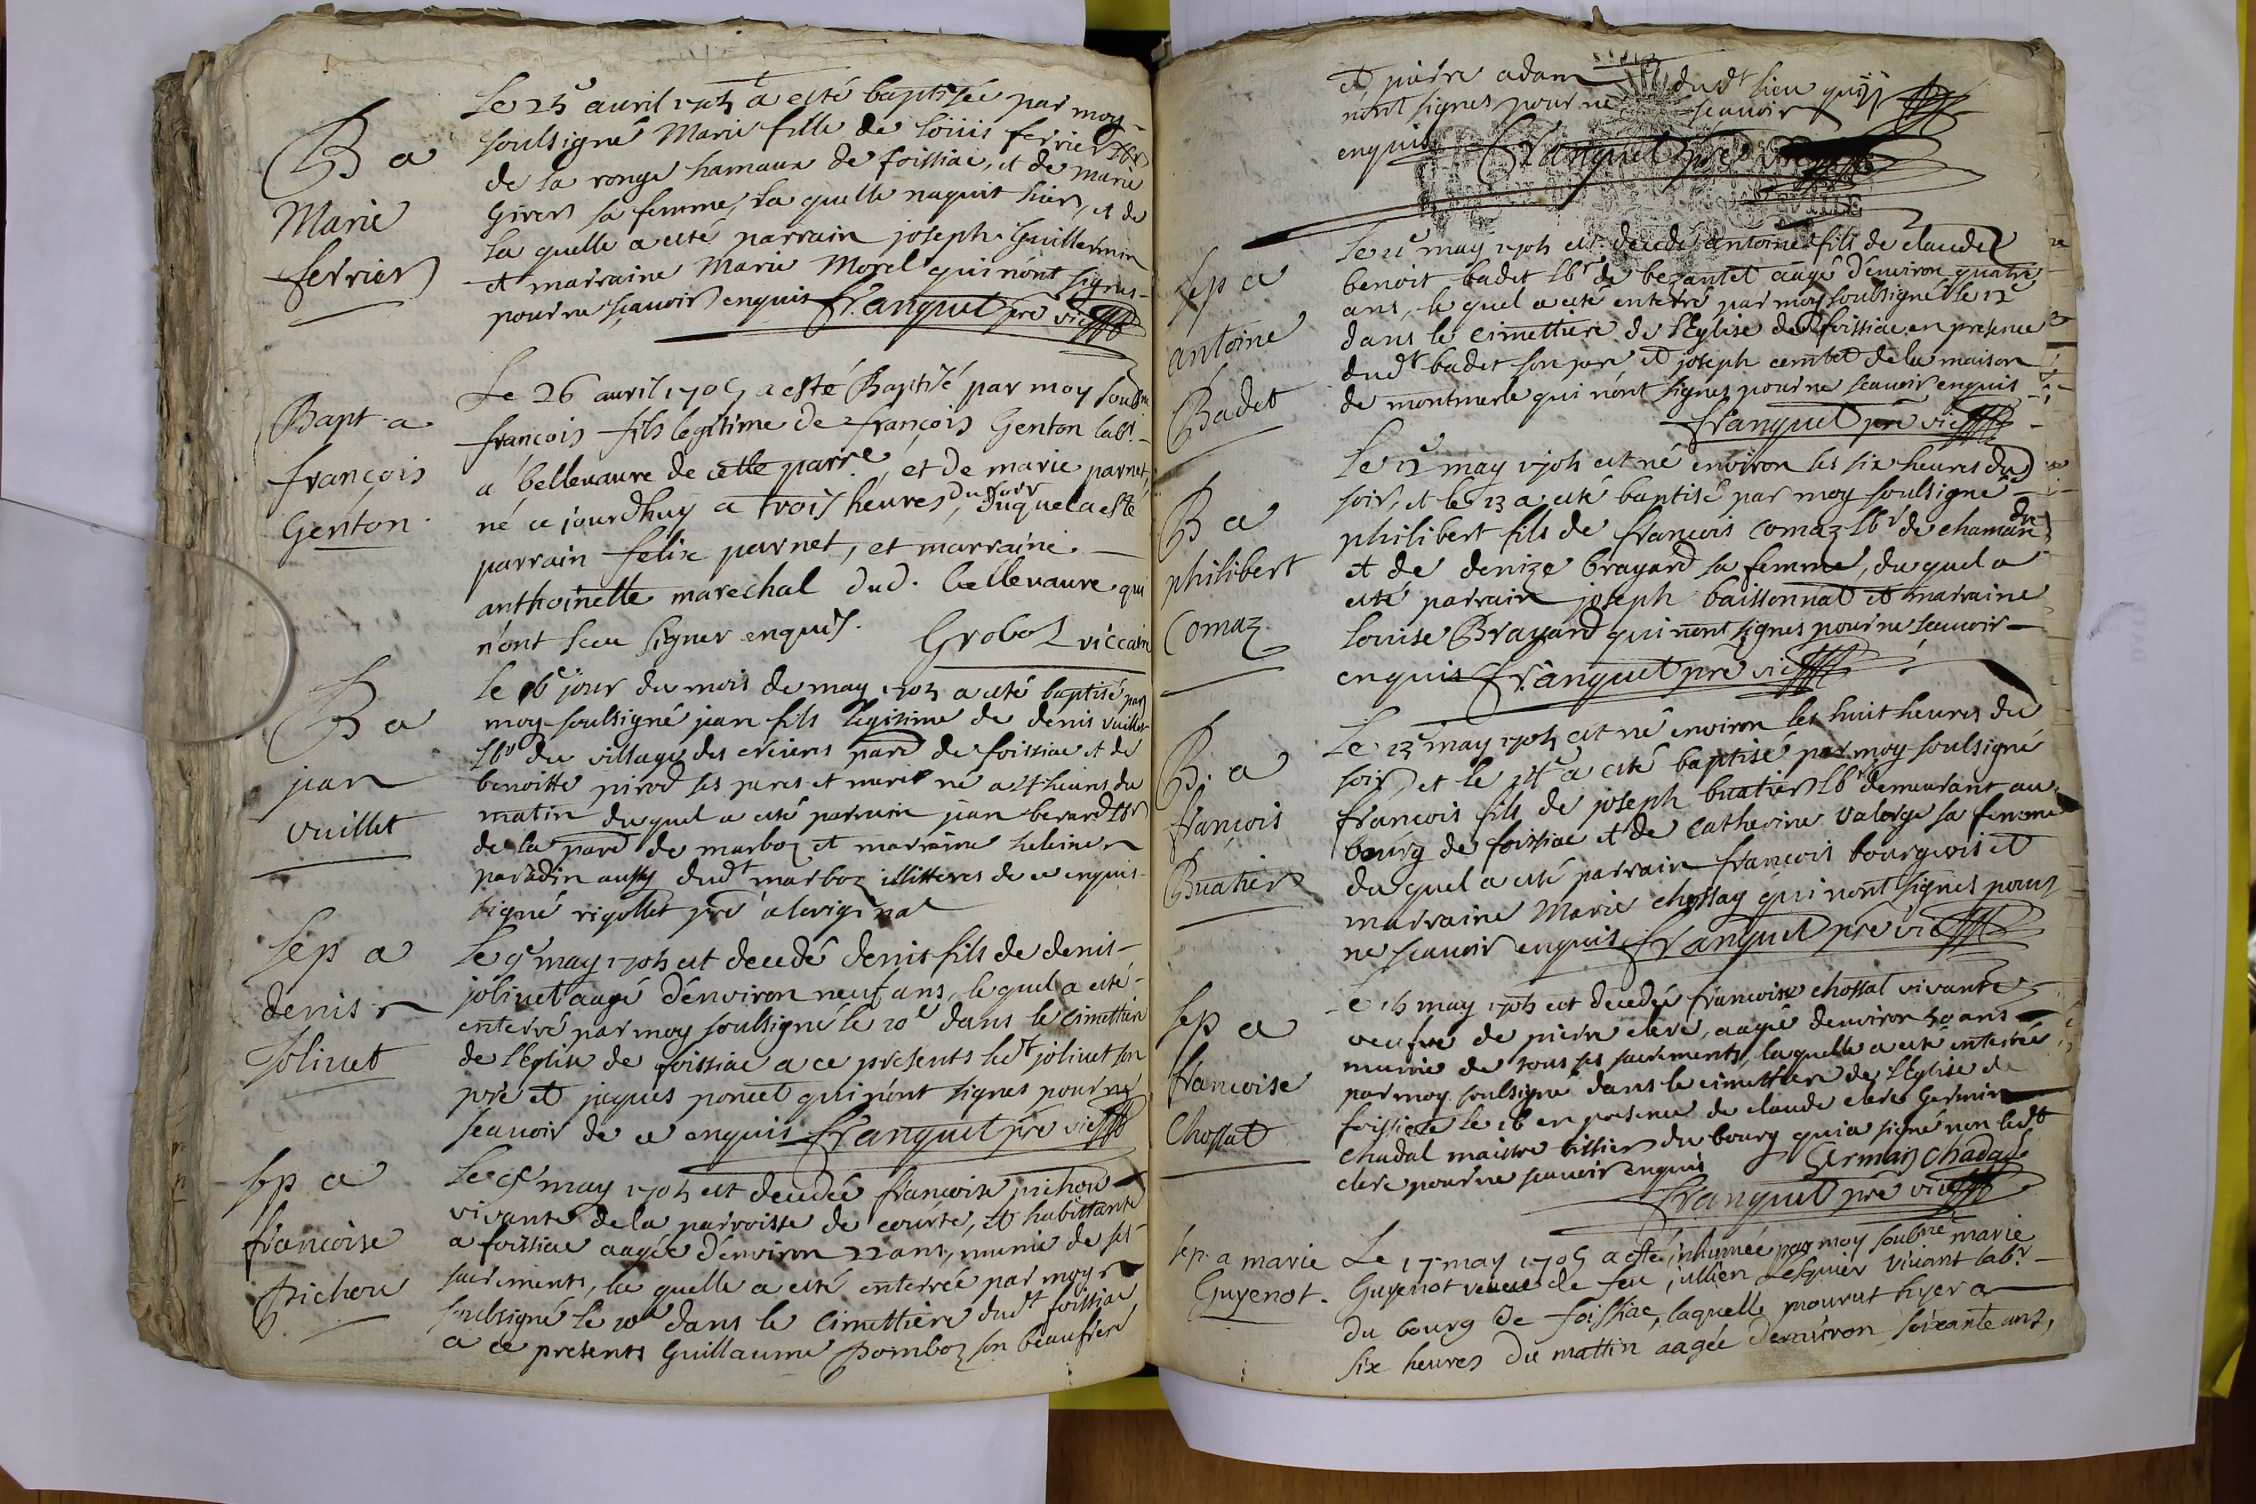 B a
Marie
ferrier
Le 25e avril 1705 a esté baptisée par moy
soulsigné Marie fille de loüis ferrier lbr
de la ronge hamaux de foissiac, et de marie
Givers sa femme, la quelle naquit hier, et de
la quelle a esté parrain joseph Guillermin
et marraine Marie Morel qui n'ont signés
pour ne sçauoir enquis franquet pre vic
Bapt. a
françois
Genton.
Le 26 auril 1705 a esté Baptisé par moy soubne
françois fils legitime de françois Genton labr.
a bellevaure de cette parre., et de marie parnet,
né ce jourdhuy a trois heures du soir, duquel a esté
parrain felix parnet, et marraine
anthoinette marechal dud. bellevaure qui
n'ont sceu signer enquis. Groboz viccaire
B a
jean
vuillet
le 6e jour du mois de may 1705 a esté baptisé par
moy soulsigné jean fils legitime de denis vuillet
lbr du village des creiens parr de foissiac et de
benoitte pirod ses peres et mere né a 4 heures du
matin duquel a esté parrain jean berard lbr
de la parr de marboz et marraine heleine
paradin aussy dudt marboz illitteres de ce enquis
signé rigollet pre a loriginal
sep a
denis
Jolinet
Le 9e may 1705 est decedé denis fils de denis
jolinet aagé d'environ neuf ans, lequel a esté
enterré par moy soulsigné le 10e dans le cimettiere
de l'Eglise de foissiac a ce presents ledt jolinet son
pere et jaques poncet qui n'ont signés pour ne
sçauoir de ce enquis franquet pre vic
sep a
francoise
pichou
Le 9e may 1705 est decedée francoise pichou
vivante de la parroisse de courte, et habittante
a foissiac aagée d'environ 22 ans, munie de ses
sacrements, la quelle a esté enterrée par moy
soulsigné le 10e dans le cimettiere dudt foissiac
a ce presents Guillaume pomboz son beaufrere
et pierre adam dudt lieu qui
n'ont signes pour ne sçauoir
enquis franquet pre vic
sep a
antoine
Badet
le 11e may 1705 est decedé antoine fils de claude
benoit badet lbr de bezantet aagé d'environ quatre
ans, le quel a esté enterré par moy soulsigné le 12e
dans le cimettiere de l'Eglise de foissiac en presence
dudt badet son pere, et joseph cembet de la maison
de montmerle qui n'ont signes pour ne sçauoir enquis
franquet pre vic
B a
philibert
Comaz
Le 12e may 1705 est né environ les six heures du
soir, et le 13 a esté baptisé par moy soulsigné
philibert fils de francois comaz lbr de chaman
dre
et de denize brayard sa femme, du quel a
esté parrain joseph baissonnat et marraine
Louise Brayard qui n'ont signes pour ne sçauoir
enquis franquet pre vic
B. a
francois
Buatier
Le 13e may 1705 est né environ les huit heures du
soir, et le 14e a esté baptisé par moy soulsigné
francois fils de joseph buatier lbr demeurant au
bourg de foissiac et de catherine valorge sa femme
du quel a esté parrain francois bourgeois et
marraine Marie chossay qui n'ont signes pour
ne sçauoir enquis franquet pre vic
sep a
francoise
Chossat
Le 15 may 1705 est decedée francoise chossat vivante
veufve de pierre clerc, aagée d'environ 50 ans
munie de tous ses sacrements, laquelle a esté enterrée
par moy soulsigné dans le cimettiere de l'Eglise de
foissiac le 16 en presence de claude clerc Germain
chadal maistre tissier du bourg qui a signé non ledt
clerc pour ne sçauoir enquis Germain Chadal
franquet pre vic
sep. a marie
Guyenot.
Le 17 may 1705 a esté inhumée par moy soubne marie
Guyenot veuve de feu jullien Lesquier vivant labr.
du bourg de foissiac, laquelle mourut hyer a
six heures du mattin aagée d'environ soixante ans,